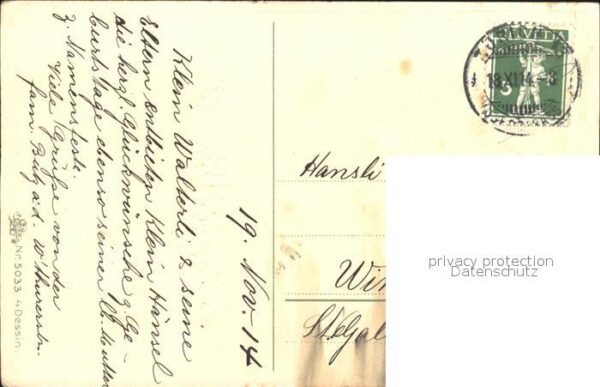 Klein Walterli & seine
Eltern entbieten Klein Hansel
die herzl. Glückwünsche z. Ge-
burtstage ebenso seiner lb. Mutter
z. Namensfeste.
Viele Grüsse von der
fam. a/d.
19. Nov. 14
HELVETIA
18.XI.14-8
Hansli
Win
St. Gal
privacy protection
Datenschutz
Nr. 5033 4 Dessin